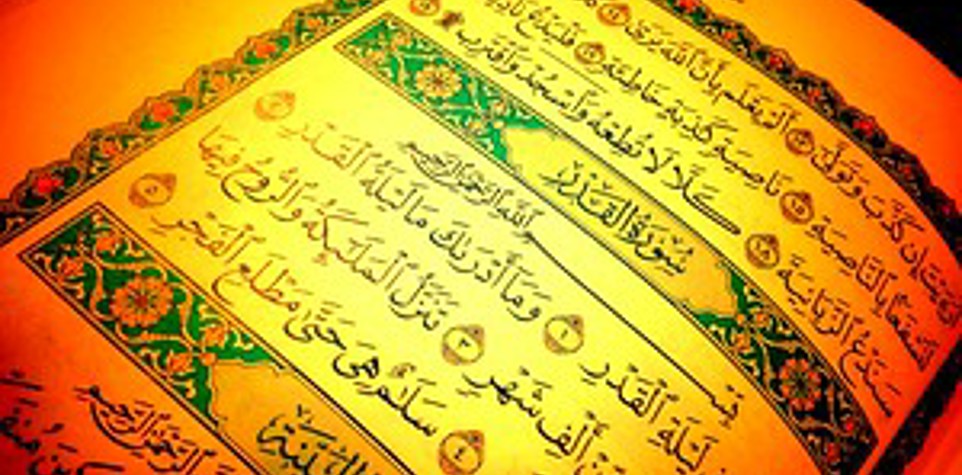 إِن كَذَّبَ وَتَوَلَّىٰ ١٣ أَلَمْ يَعْلَم بِأَنَّ ٱللَّهَ يَرَىٰ ١٤
بِٱلنَّاصِيَةِ ١٥ نَاصِيَةٍ كَٰذِبَةٍ خَاطِئَةٍ ١٦ فَلْيَدْعُ نَادِيَهُۥ
سَنَدْعُ ٱلزَّبَانِيَةَ ١٨ كَلَّا لَا تُطِعْهُ وَٱسْجُدْ وَٱقْتَرِب ۩ ١٩
سُورَةُ القَدْرِ
بِسْمِ ٱللَّهِ ٱلرَّحْمَٰنِ ٱلرَّحِيمِ
لَيْلَةِ ٱلْقَدْرِ ١ وَمَآ أَدْرَىٰكَ مَا لَيْلَةُ ٱلْقَدْرِ ٢
أَلْفِ شَهْرٍ ٣ تَنَزَّلُ ٱلْمَلَٰٓئِكَةُ وَٱلرُّوحُ فِيهَا
٤ سَلَٰمٌ هِيَ حَتَّىٰ مَطْلَعِ ٱلْفَجْرِ ٥
البَيِّنَةِ
ٱلرَّحْمَٰنِ ٱلرَّحِيمِ